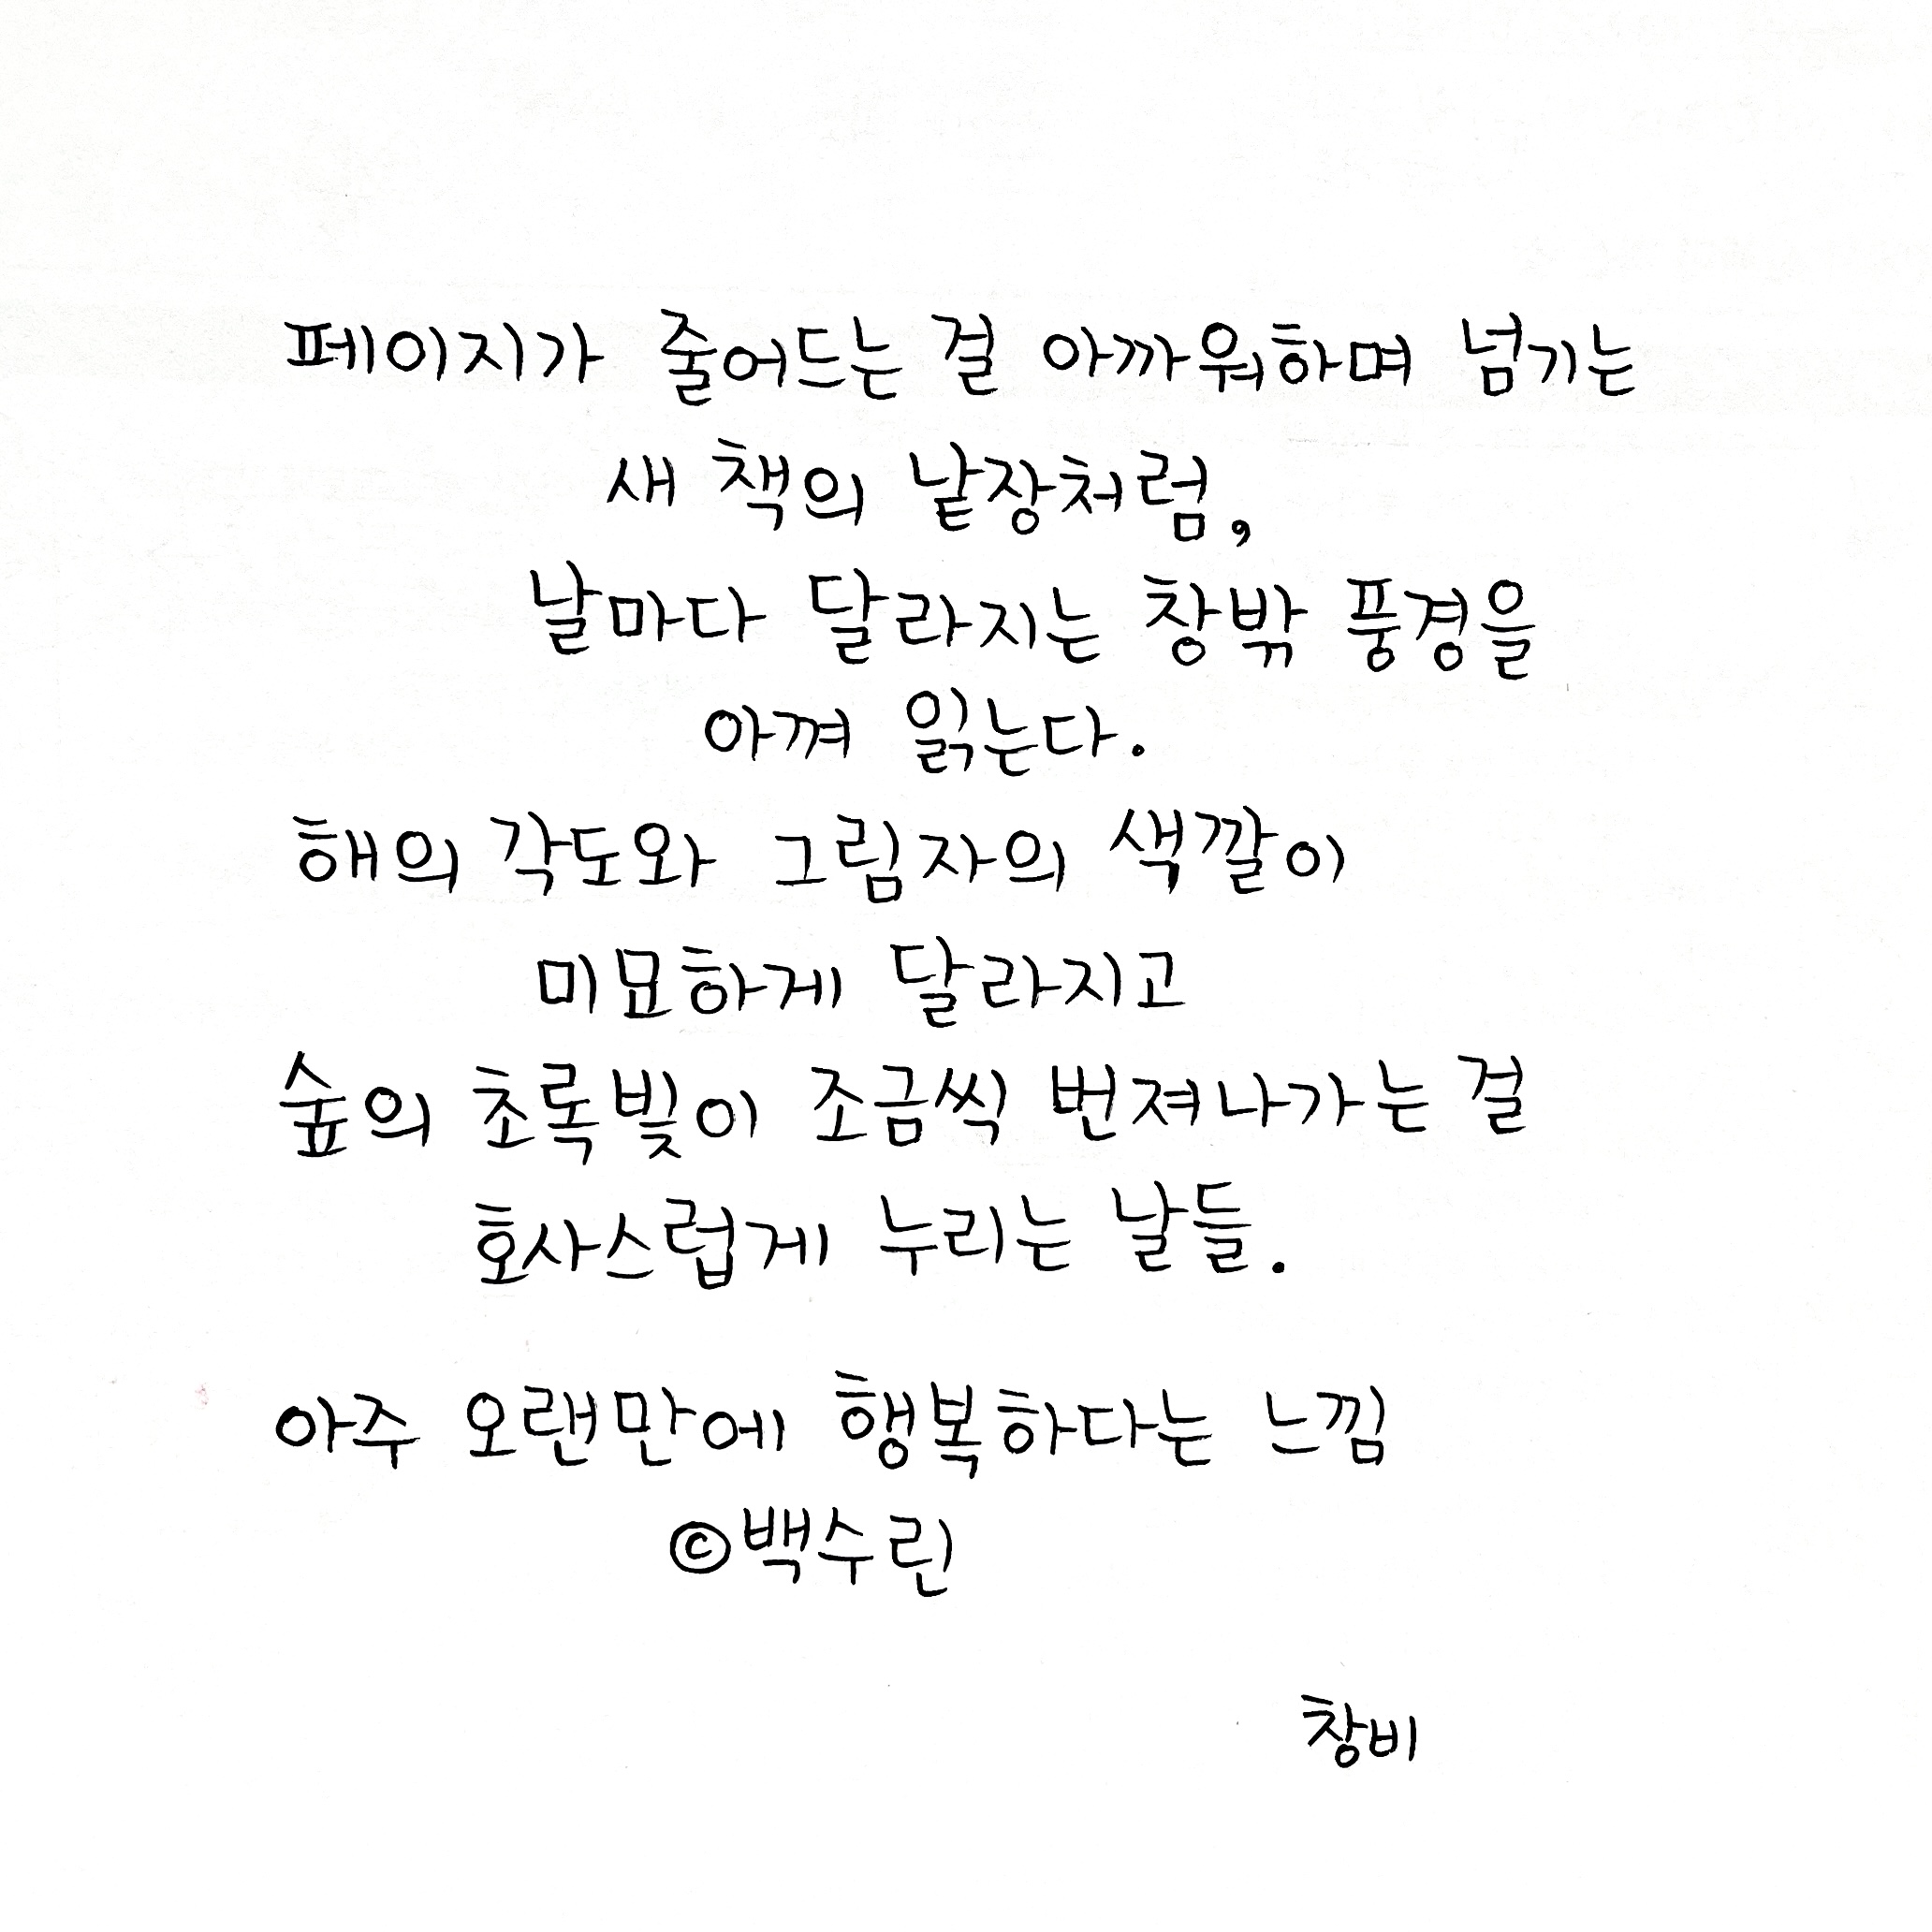 페이지가 줄어드는 걸 아까워하며 넘기는
새 책의 낱장처럼,
날마다 달라지는 창밖 풍경을
아껴 읽는다.
해의 각도와 그림자의 색깔이
미묘하게 달라지고
숲의 초록빛이 조금씩 번져나가는 걸
호사스럽게 누리는 날들.
아주 오랜만에 행복하다는 느낌
©백수린
창비